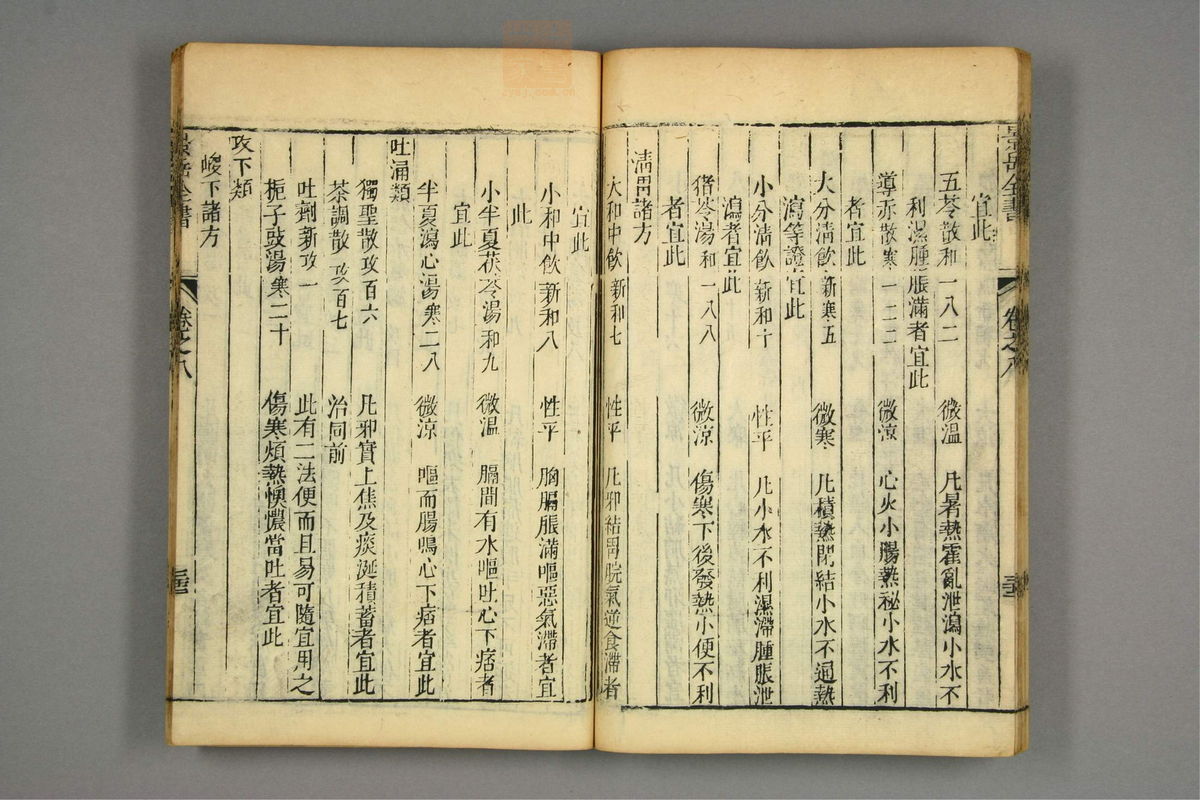 景岳全書
卷之八
三十三
宜此
五苓散和一八二 微溫 凡暑熱霍亂泄瀉小水不
利濕腫脹滿者宜此
導赤散寒一二二 微凉 心火小腸熱秘小水不利
者宜此
大分清飲新寒五 微寒 凡積熱閉結小水不通熱
瀉等證宜此
小分清飲新和十 性平 凡小水不利濕滯腫脹泄
瀉者宜此
猪苓湯和一八八 微凉 傷寒下後發熱小便不利
者宜此
清胃諸方
大和中飲新和七 性平 凡邪結胃脘氣逆食滯者
宜此
小和中飲新和八 性平 胸膈脹滿嘔惡氣滯者宜
此
小半夏茯苓湯和九 微溫 膈間有水嘔吐心下痞者
宜此
半夏瀉心湯寒二八 微凉 嘔而腸鳴心下痞者宜此
吐涌類
獨聖散攻百六 凡邪實上焦及痰涎積蓄者宜此
茶調散攻百七 治同前
吐劑新攻一 此有二法便而且易可隨宜用之
梔子豉湯寒二十 傷寒煩熱懊憹當吐者宜此
攻下類
峻下諸方
景岳全書
卷之八
三十三